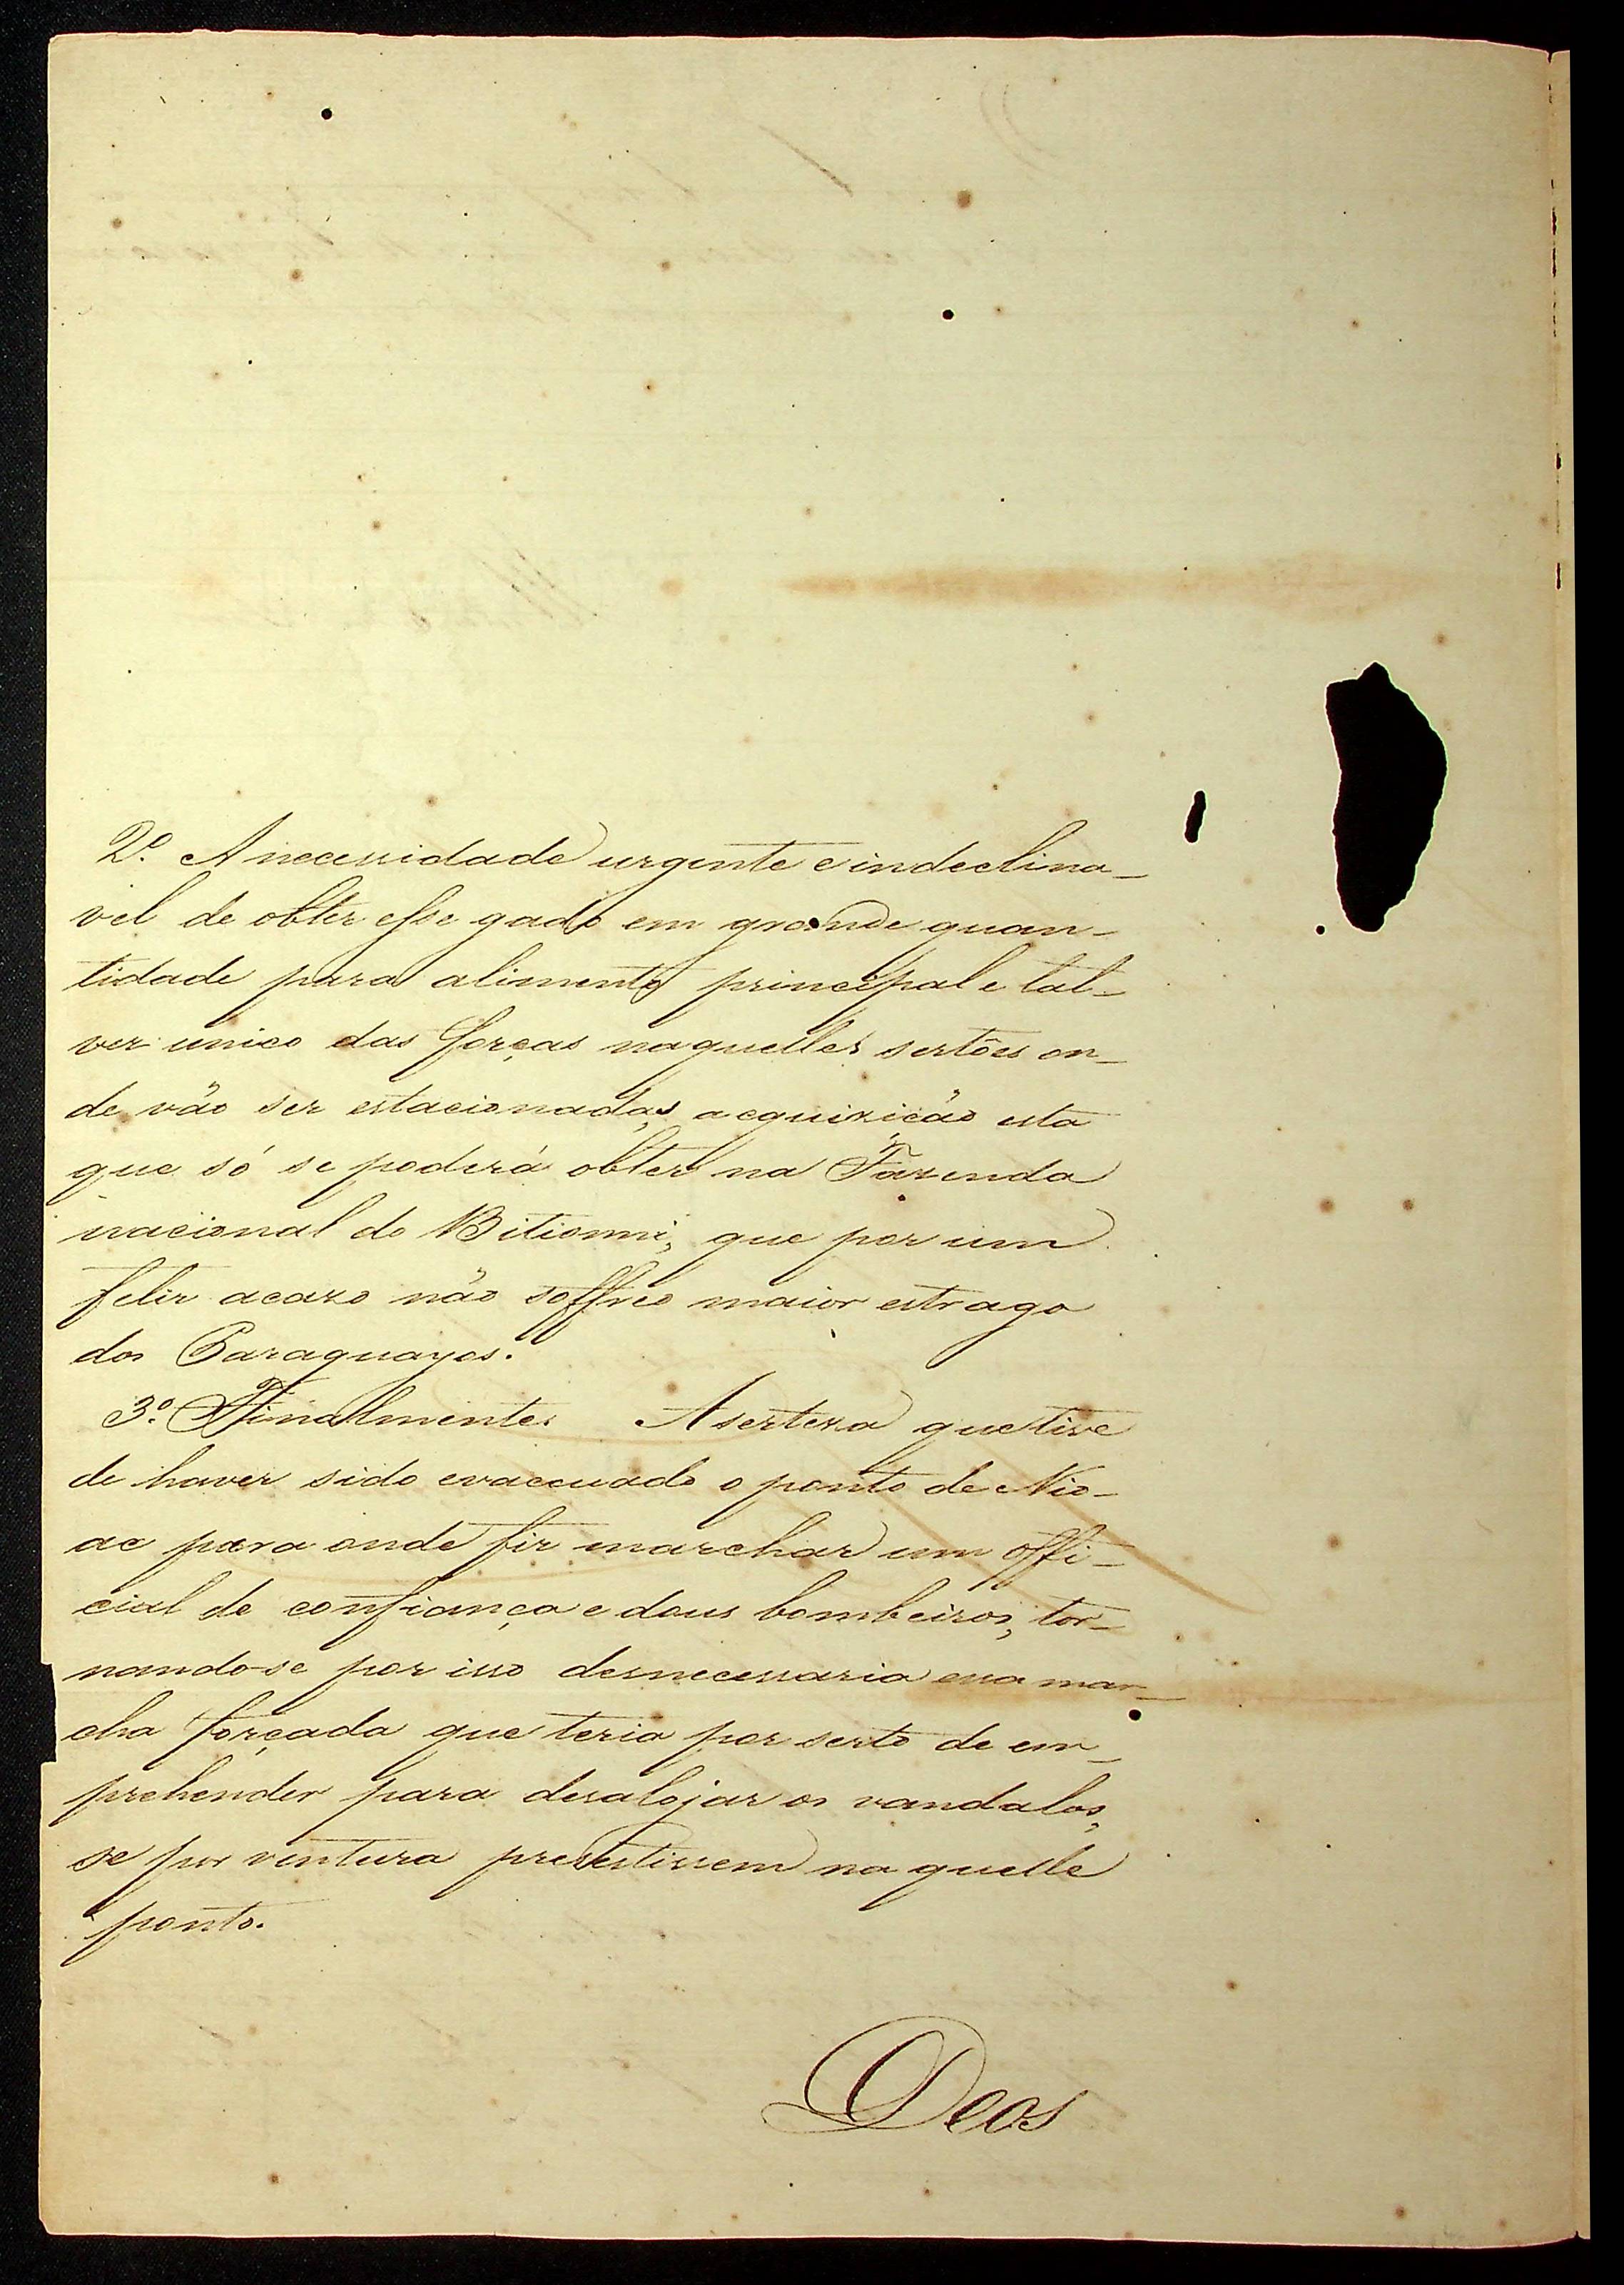 2º. A necessidade urgente e indeclina-
vel de obter esse gado em grande quan-
tidade para alimento principal e tal-
vez unico das forças naquelles sertões on-
de vão ser estacionadas, acquizição esta
que só se poderá obter na Fazenda
nacional do Bitiomi, que por um
feliz acazo não soffreo maior estrago
dos Paraguayos.
3º. Finalmente. Aserteza que tive
de haver sido evaccuado o ponto de Nio-
ac para onde fiz marchar um offi-
cial de confiança e dous bombeiros, tor-
nando-se por isso desnecessaria essa mar-
cha forçada que teria por serto de em-
prehender para desalojar os vandalos,
se por ventura prezestissem na quelle
ponto.
Deos